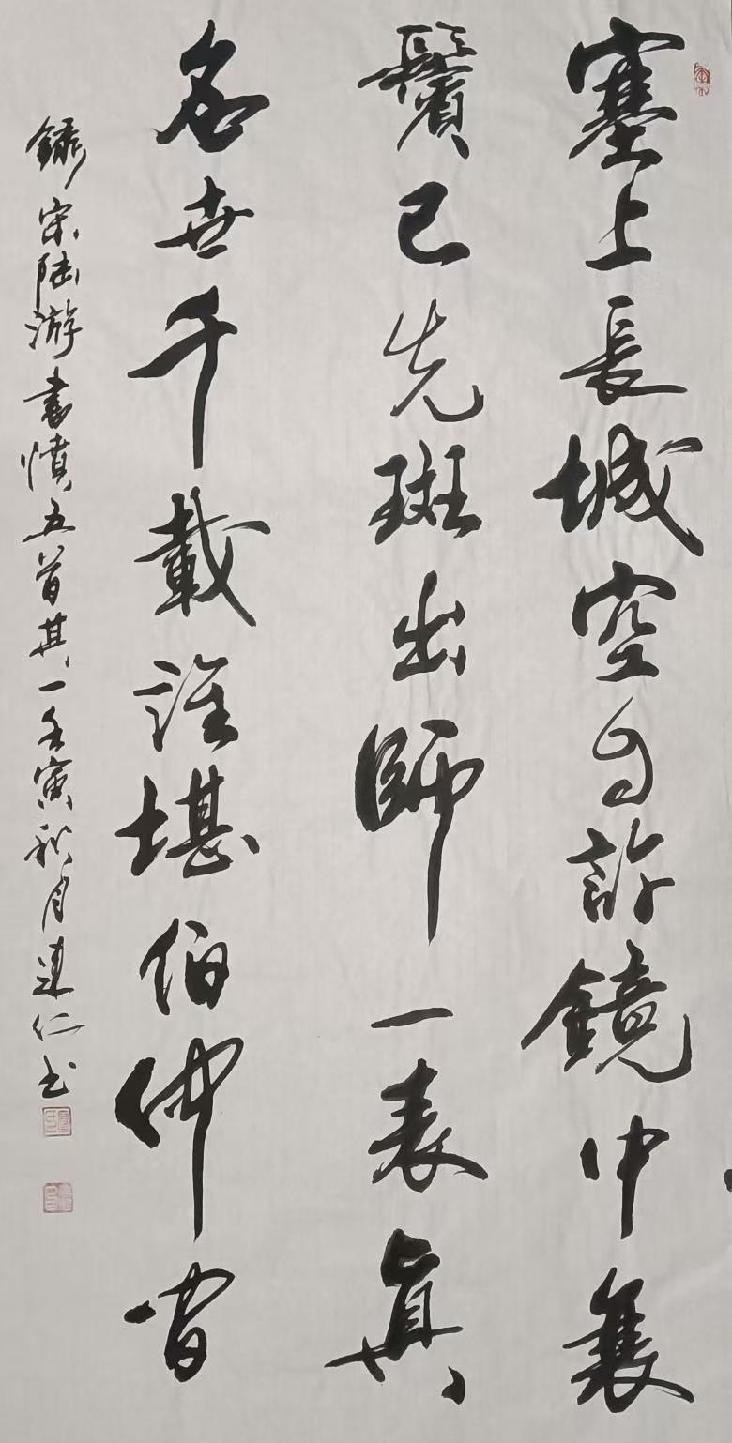 塞上長城空自許鏡中衰
鬢已先斑出師一表真
名世千載誰堪伯仲間
錄宋陸游書憤五首其一壬寅秋月建仁书